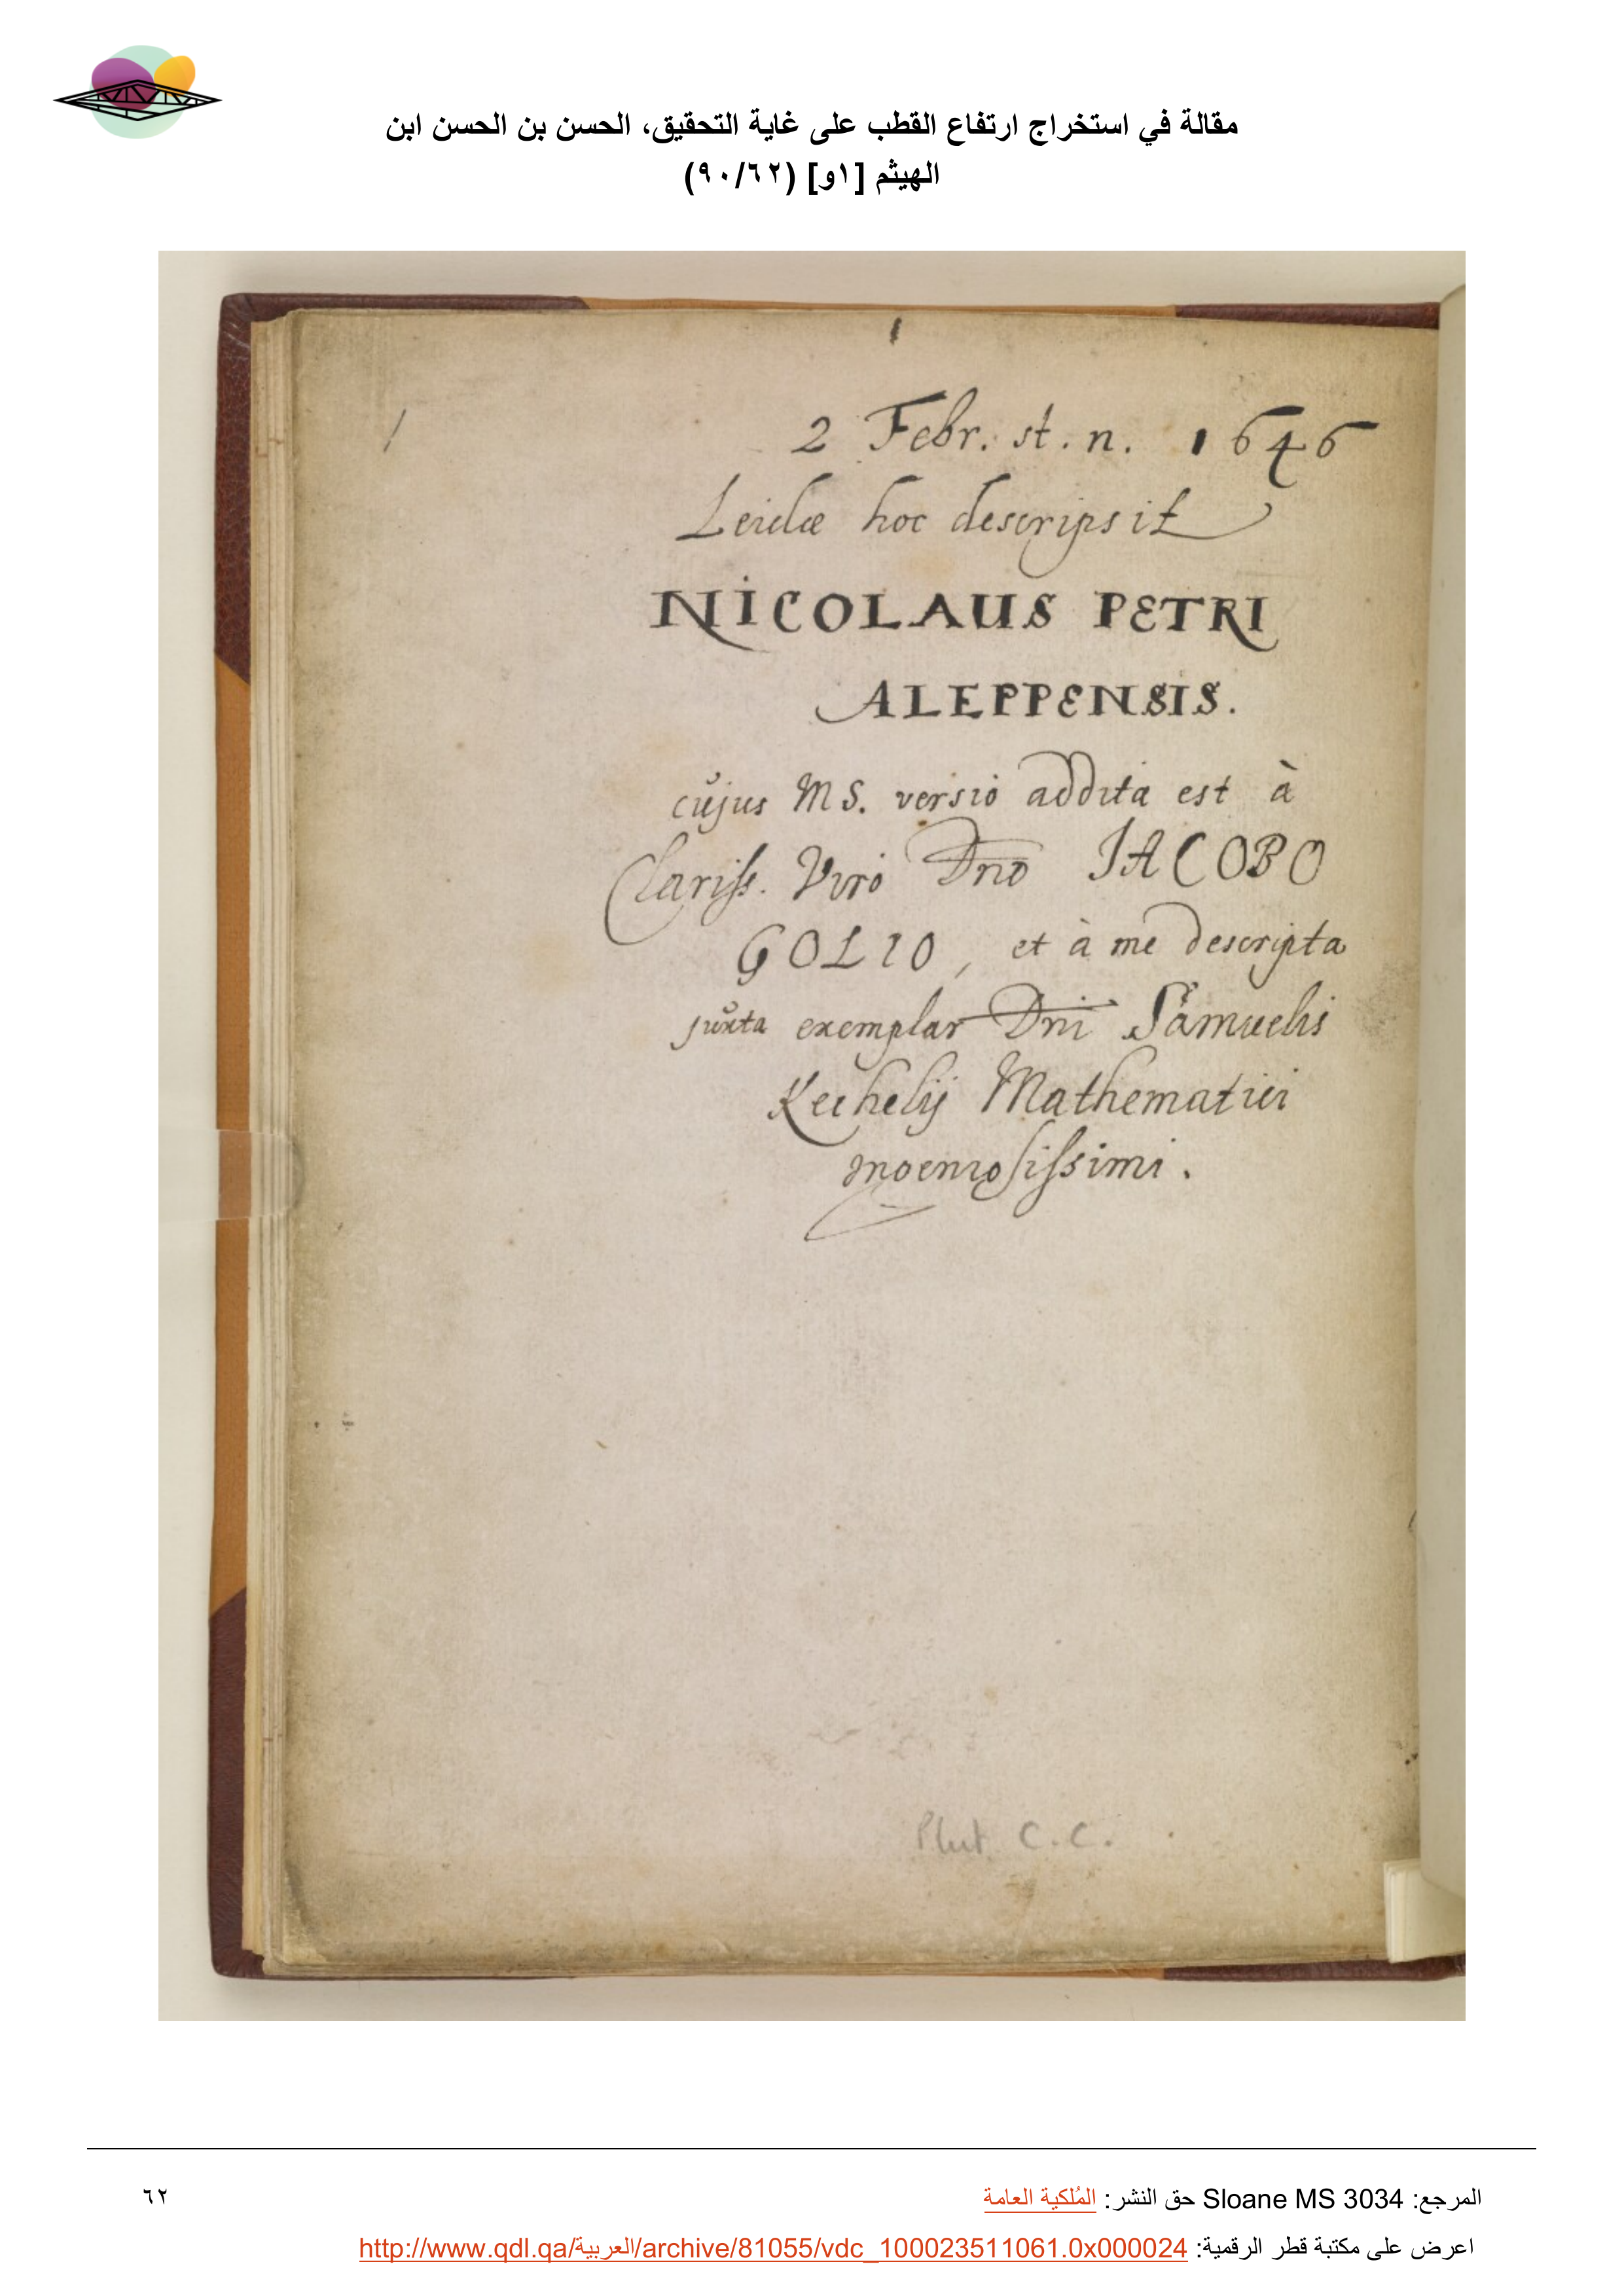 مقالة في استخراج ارتفاع القطب على غاية التحقيق، الحسن بن الحسن ابن
الهيثم [١و] (٩٠/٦٢)
1
1
2 Febr. st. n. 1646
Leidæ hoc descripsit
NICOLAUS PETRI
ALEPPENSIS.
cujus MS. versio addita est à
Clariss. Viro Dno JACOBO
GOLIO, et à me descripta
juxta exemplar Dni Samuelis
Kechelij Mathematici
Plut. C.C.
المرجع: Sloane MS 3034 حق النشر: المُلكية العامة
٦٢
اعرض على مكتبة قطر الرقمية: http://www.qdl.qa/العربية/archive/81055/vdc_100023511061.0x000024